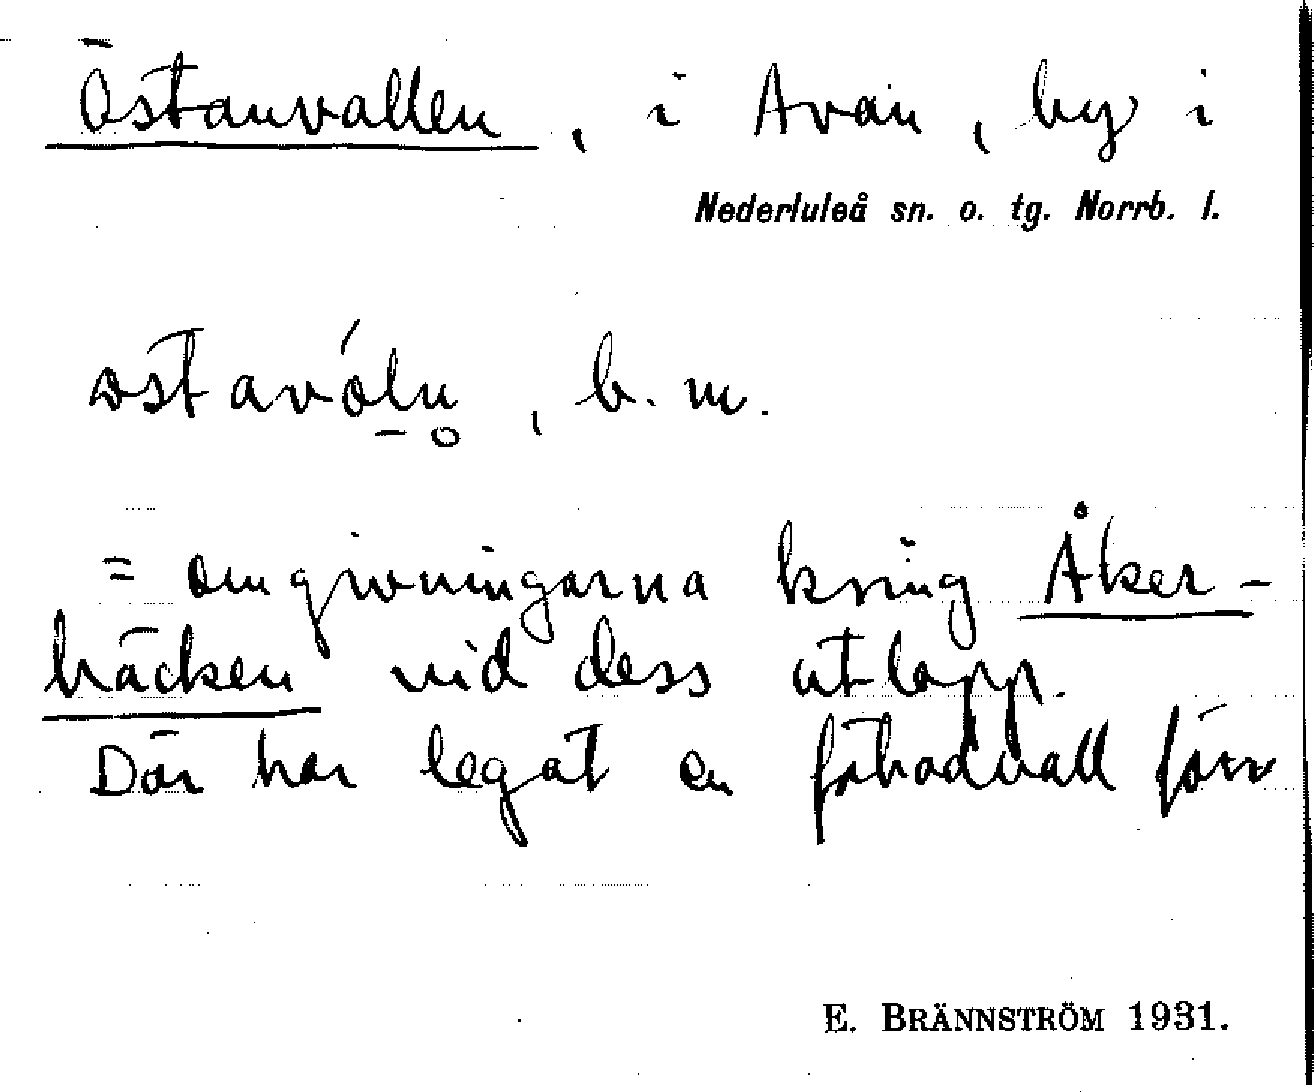 Östanvallen, i Avan, by i
Nederluleå sn. o. tg. Norrb. l.
östavó̱ln̥, b. m.
= omgivningarna kring Åker-
bäcken vid dess utlopp.
Där har legat en fäbodvall förr
E. BRÄNNSTRÖM 1931.